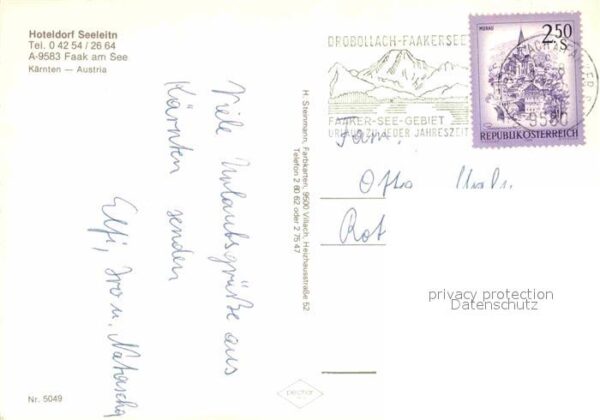 Hoteldorf Seeleitn
Tel. 0 42 54 / 26 64
A-9583 Faak am See
Kärnten — Austria
Viele Urlaubsgrüße aus
Kärnten senden
Elfi, u. Natascha
H. Steinmann, Farbkarten, 9500 Villach, Heizhausstraße 52
Telefon 2 60 62 oder 2 75 47
DROBOLLACH-FAAKERSEE
FAAKER-SEE-GEBIET
URLAUB ZU JEDER JAHRESZEIT
MURAU
2.50
S
REPUBLIK ÖSTERREICH
9580
Fam.
Otto
Rot
privacy protection
Nr. 5049